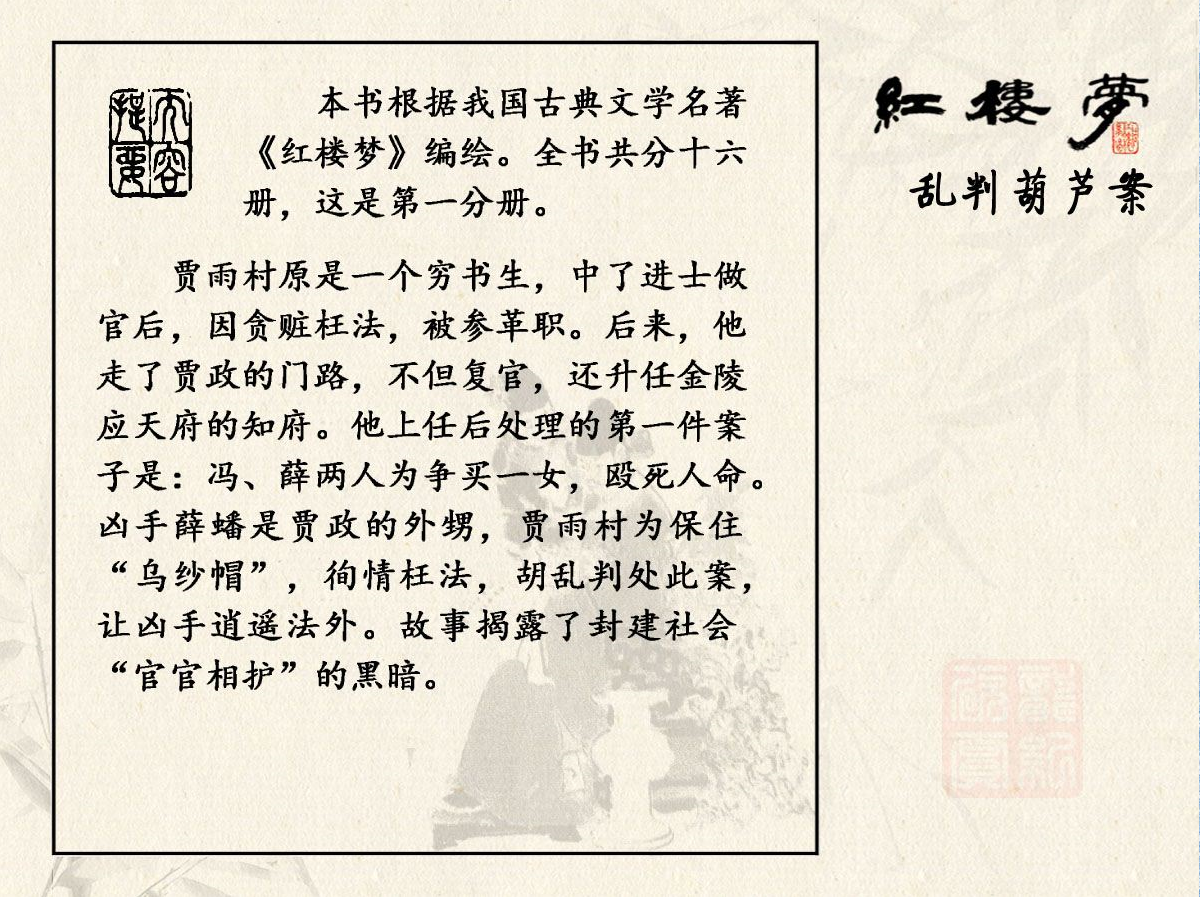 内容
提要
本书根据我国古典文学名著
《红楼梦》编绘。全书共分十六
册，这是第一分册。
贾雨村原是一个穷书生，中了进士做
官后，因贪赃枉法，被参革职。后来，他
走了贾政的门路，不但复官，还升任金陵
应天府的知府。他上任后处理的第一件案
子是：冯、薛两人为争买一女，殴死人命。
凶手薛蟠是贾政的外甥，贾雨村为保住
“乌纱帽”，徇情枉法，胡乱判处此案，
让凶手逍遥法外。故事揭露了封建社会
“官官相护”的黑暗。
紅樓夢
乱判葫芦案